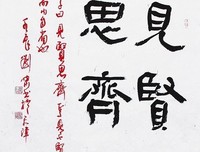 見賢
思齊
子曰見賢思齊焉見不賢
而內自省也